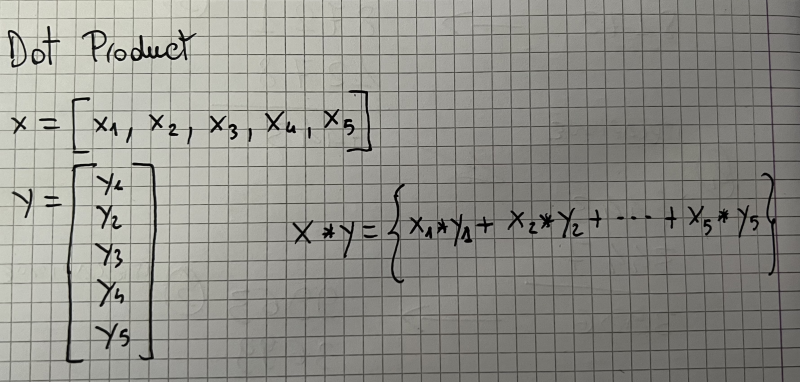 Dot Product
x = [x1, x2, x3, x4, x5]
y = [y1
y2
y3
y4
y5]
x * y = {x1*y1 + x2*y2 + ... + x5*y5}